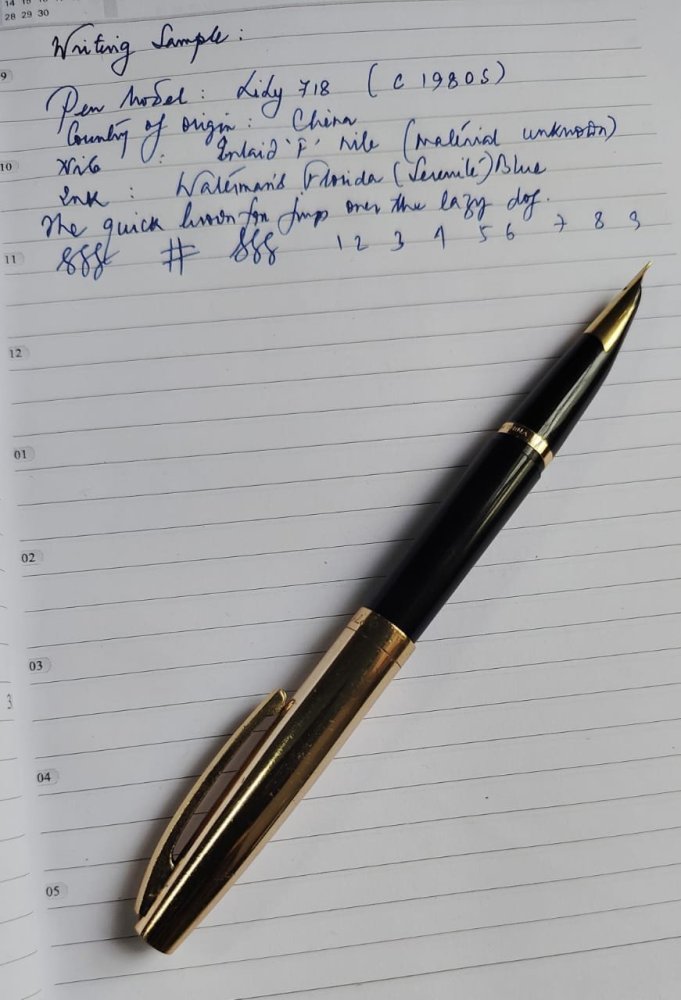 14 15 16
28 29 30
Writing Sample:
9
Pen Model: Lily 718 (C 1980s)
Country of origin: China
10
Nib : Inlaid 'F' nib (material unknown)
Ink : Waterman's Florida (Serenité) Blue
The quick brown fox jump over the lazy dog.
11
# 1 2 3 4 5 6 7 8 9
12
01
02
03
3
04
05